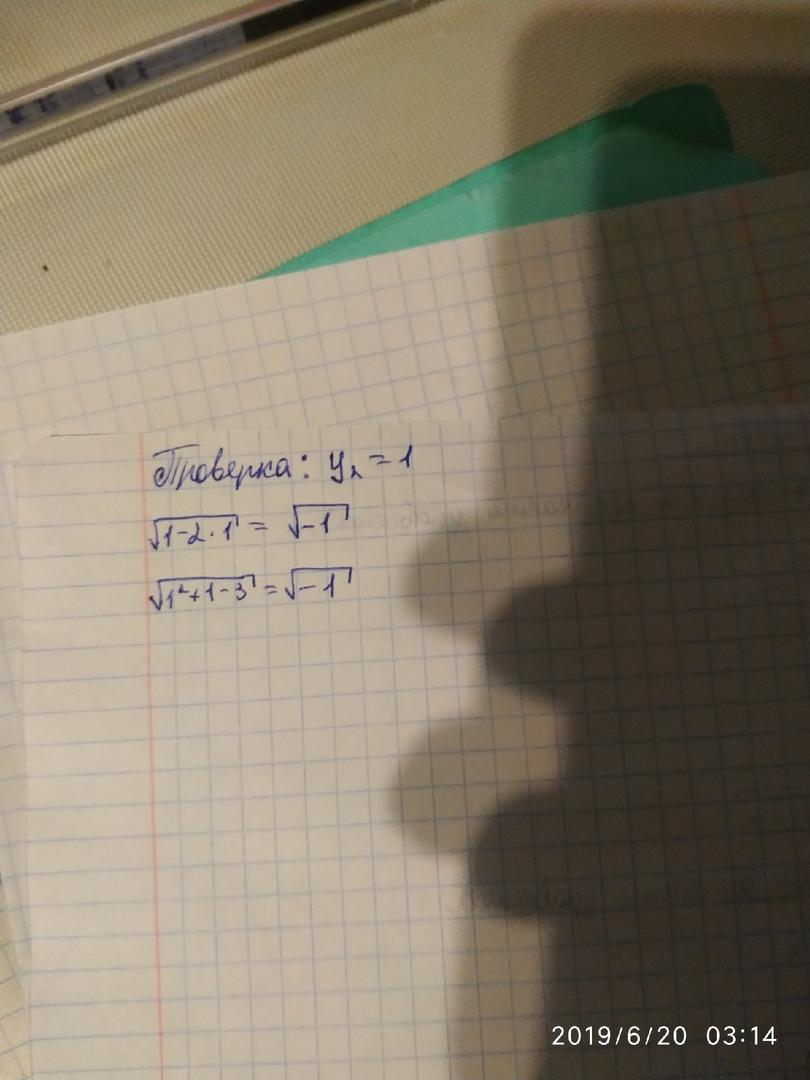 Проверка: y₂ = 1
√1-2·1 = √-1
√1²+1-3 = √-1
2019/6/20 03:14